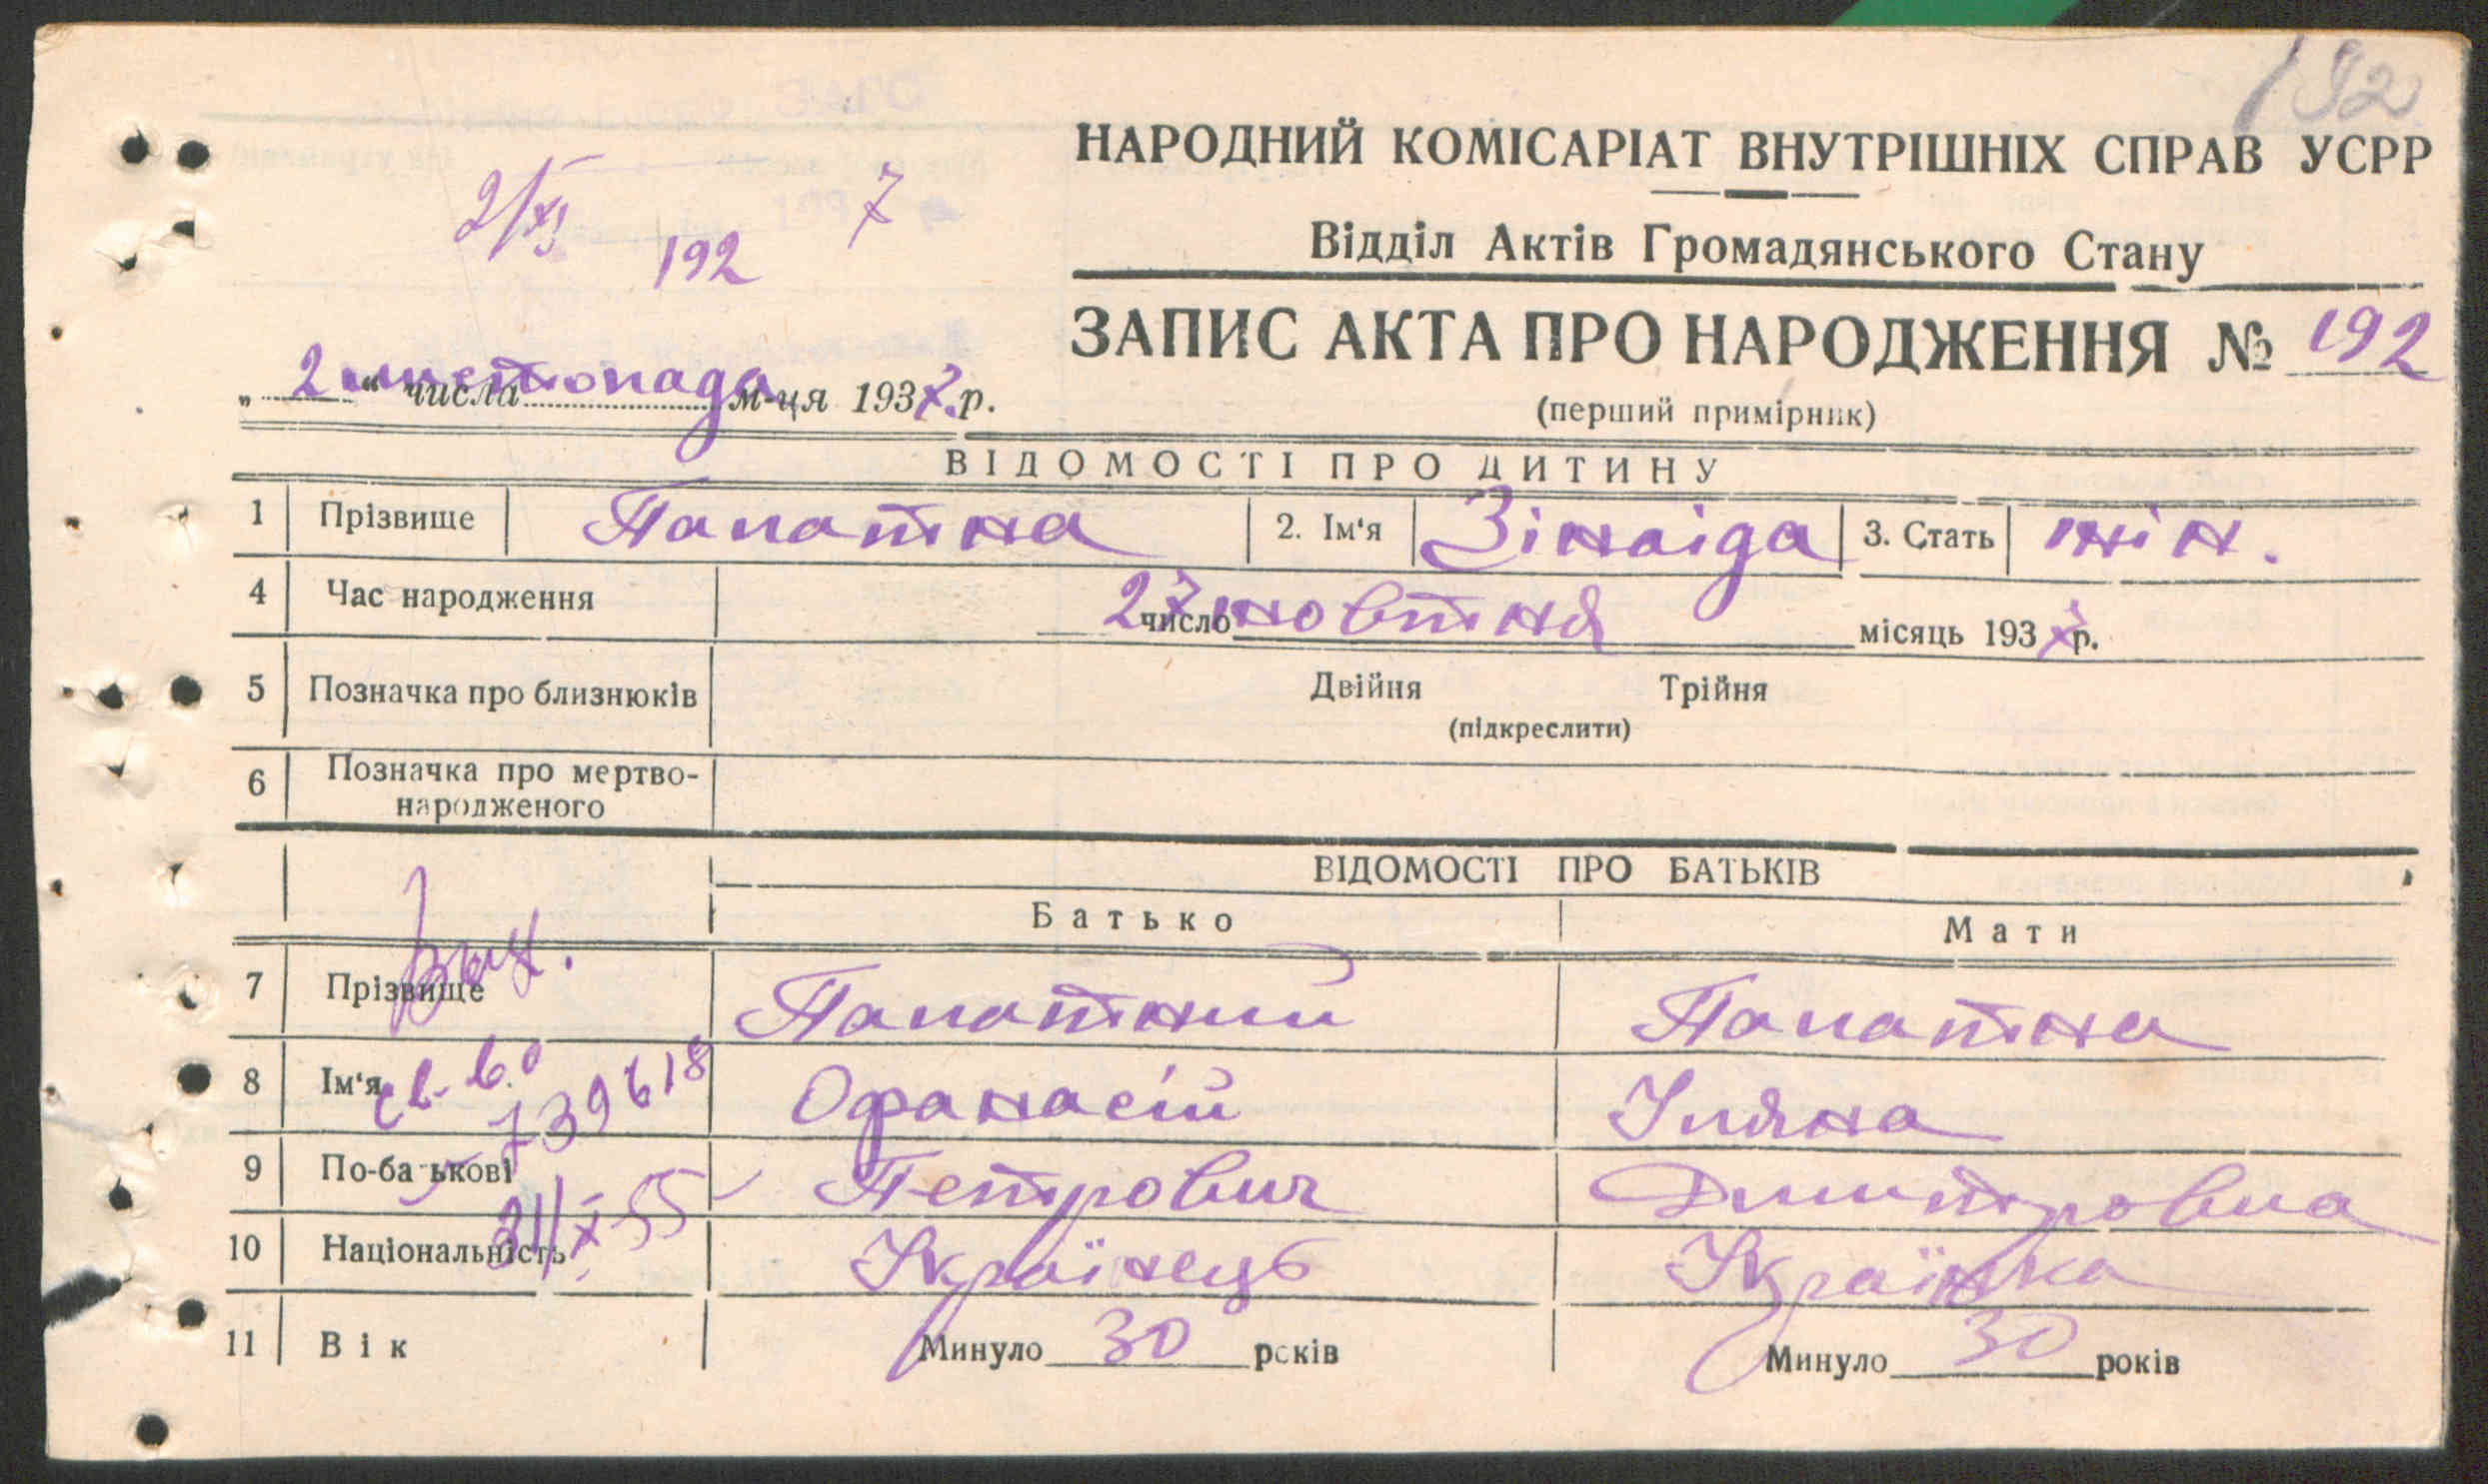 192
НАРОДНИЙ КОМІСАРІАТ ВНУТРІШНІХ СПРАВ УСРР
2/XI 192 7
Відділ Актів Громадянського Стану
ЗАПИС АКТА ПРО НАРОДЖЕННЯ № 192
„ 2 “ числа листопада м-ця 1937 р.
(перший примірник)
ВІДОМОСТІ ПРО ДИТИНУ
1 Прізвище Палатна 2. Ім'я Зінаіда 3. Стать жін.
4 Час народження 27 число жовтня місяць 1937 р.
5 Позначка про близнюків Двійня Трійня
(підкреслити)
6 Позначка про мертво-
народженого
ВІДОМОСТІ ПРО БАТЬКІВ
Батько Мати
7 Прізвище Палатний Палатна
8 Ім'я Офанасій Уляна
739618
9 По-батькові Петрович Дмитровна
31/X-55
10 Національність Українець Українка
11 Вік Минуло 30 років Минуло 30 років